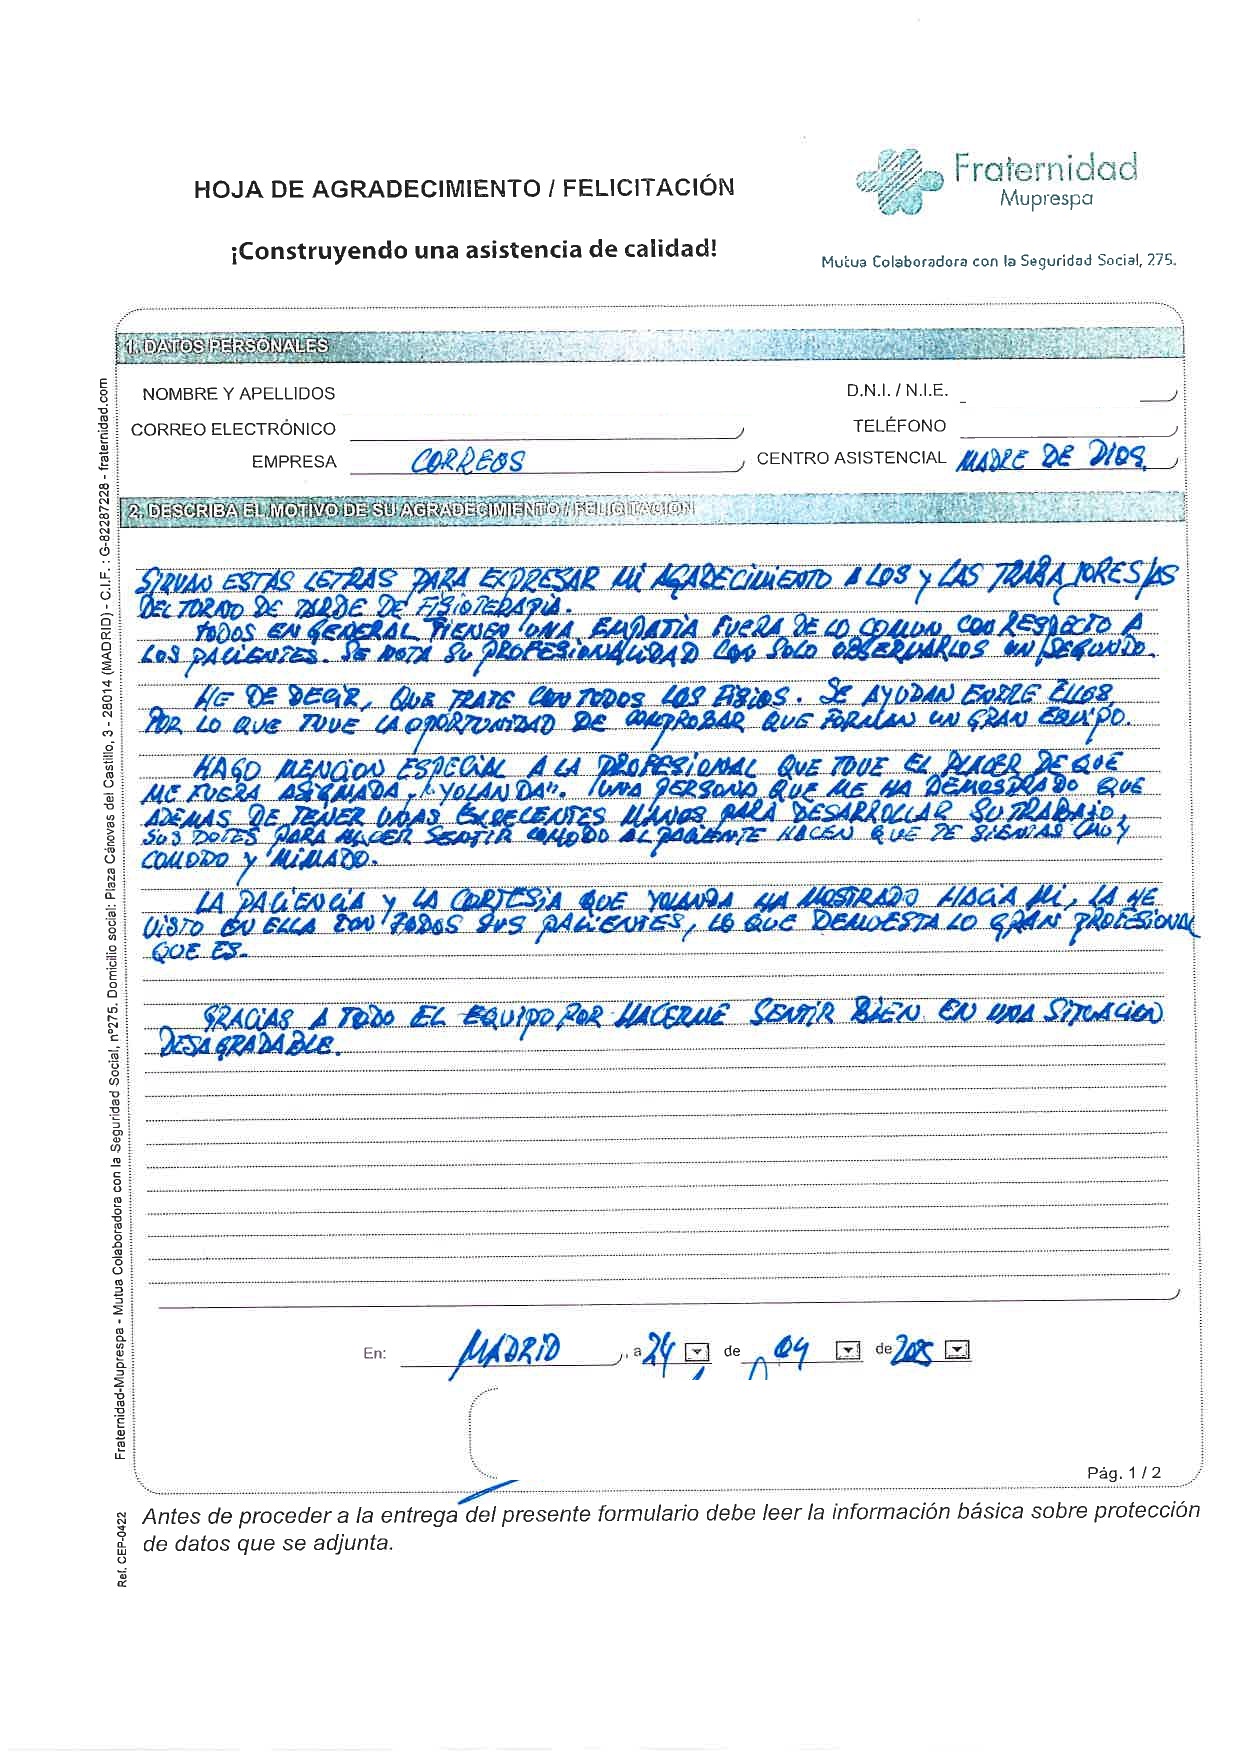 HOJA DE AGRADECIMIENTO / FELICITACIÓN
Fraternidad
Muprespa
¡Construyendo una asistencia de calidad!
Mutua Colaboradora con la Seguridad Social, 275.
1. DATOS PERSONALES
NOMBRE Y APELLIDOS D.N.I. / N.I.E.
CORREO ELECTRÓNICO TELÉFONO
EMPRESA CORREOS CENTRO ASISTENCIAL MADRE DE DIOS.
2. DESCRIBA EL MOTIVO DE SU AGRADECIMIENTO / FELICITACIÓN
SIRVAN ESTAS LETRAS PARA EXPRESAR MI AGADECIMIENTO A LOS Y LAS TRABAJORES/AS
DEL TORNO DE TARDE DE FISIOTERAPIA.
TODOS EN GENERAL TIENEN UNA EMPATIA FUERA DE LO COMUN CON RESPECTO A
LOS PACIENTES. SE NOTA SU PROFESIONALIDAD CON SOLO OBSERVARLOS UN SEGUNDO.
HE DE DECIR, QUE TRATE CON TODOS LOS FISIOS. SE AYUDAN ENTRE ELLOS
POR LO QUE TUVE LA OPORTUNIDAD DE COMPROBAR QUE FORMAN UN GRAN EQUIPO.
HAGO MENCION ESPECIAL A LA PROFESIONAL QUE TUVE EL PLACER DE QUE
ME FUERA ASIGNADA, "YOLANDA". UNA PERSONA QUE ME HA DEMOSTRADO QUE
ADEMAS DE TENER UNAS EXCECENTES MANOS PARA DESARROLLAR SU TRABAJO,
SUS DOTES PARA HACER SENTIR COMODO AL PACIENTE HACEN QUE TE SIENTAS MUY
COMODO Y MIMADO.
LA PACIENCIA Y LA CORTESIA QUE YOLANDA HA MOSTRADO HACIA MI, LA HE
VISTO EN ELLA CON TODOS SUS PACIENTES, LO QUE DEMUESTA LO GRAN PROFESIONAL
QUE ES.
GRACIAS A TODO EL EQUIPO POR HACERME SENTIR BIEN EN UNA SITUACION
DESAGRADABLE.
En: MADRID, a 24 de 04 de
Pág. 1 / 2
Antes de proceder a la entrega del presente formulario debe leer la información básica sobre protección
de datos que se adjunta.
Fraternidad-Muprespa - Mutua Colaboradora con la Seguridad Social, nº275. Domicilio social: Plaza Cánovas del Castillo, 3 - 28014 (MADRID) - C.I.F. : G-82287228 - fraternidad.com
Ref. CEP-0422